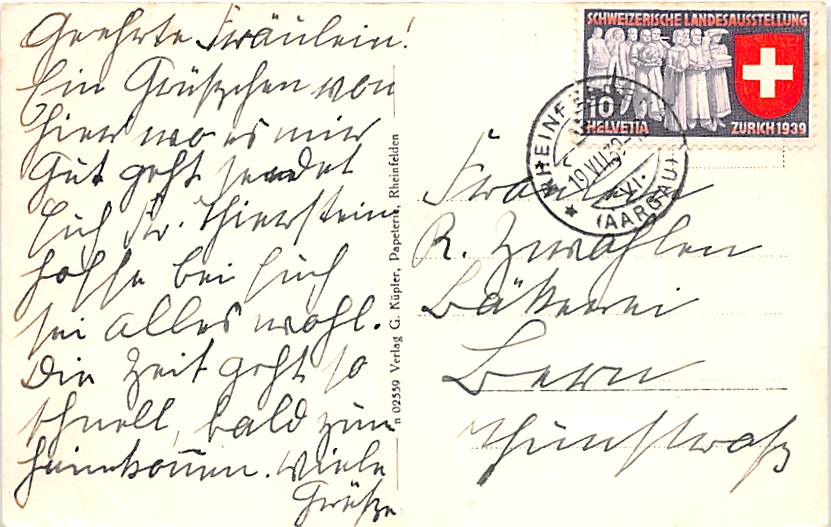 Geehrte Fräulein!
Ein Grüßchen von
hier wo es mir
Gut geht sendet
Euch Fr. Thierstein
hoffe bei Euch
sei alles wohl.
Die Zeit geht so
schnell, bald zum
heimkom̅en. Viele
Grüße
n 02559 Verlag G. Küpfer, Papeterie, Rheinfelden
SCHWEIZERISCHE LANDESAUSSTELLUNG
10
HELVETIA
ZÜRICH 1939
RHEINFELDEN
19.VII.39
(AARGAU)
Fräulein
R. Zwahlen
Bäckerei
Bern
Thunstraße